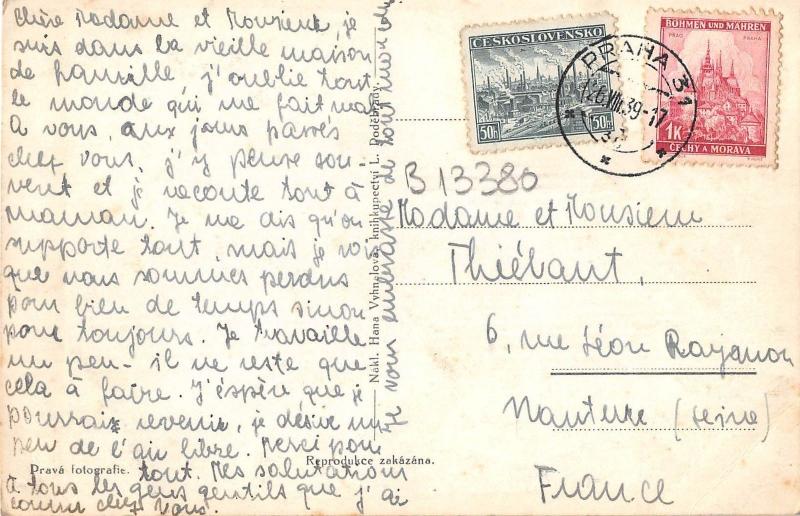 Chère Madame et Monsieur, je
suis dans la vieille maison
de famille j'oublie tout
le monde qui me fait mal
A vous, aux jours passés
chez vous, j'y pense sou-
vent et je raconte tout à
maman. Je me dis qu'on
supporte tout, mais je vois
que nous sommes perdus
pour bien de temps sinon
pour toujours. Je travaille
un peu - il ne reste que
cela à faire. J'espère que je
pourrais revenir, je désire un
peu de l'air libre. Merci pour
tout. Mes salutations
à tous les gens gentils que j'ai
connu chez vous.
Je vous embrasse de tout mon cœur
Pravá fotografie.
Reprodukce zakázána.
Nákl. Hana Vyhnalova, knihkupectví L. Poděbrady.
ČESKOSLOVENSKO
50h
50h
BÖHMEN UND MÄHREN
PRAG
PRAHA
1K
ČECHY A MORAVA
PRAHA 31
VIII.39-17
B 13380
Madame et Monsieur
Thiébaut,
6, rue Léon
Nanterre (Seine)
France